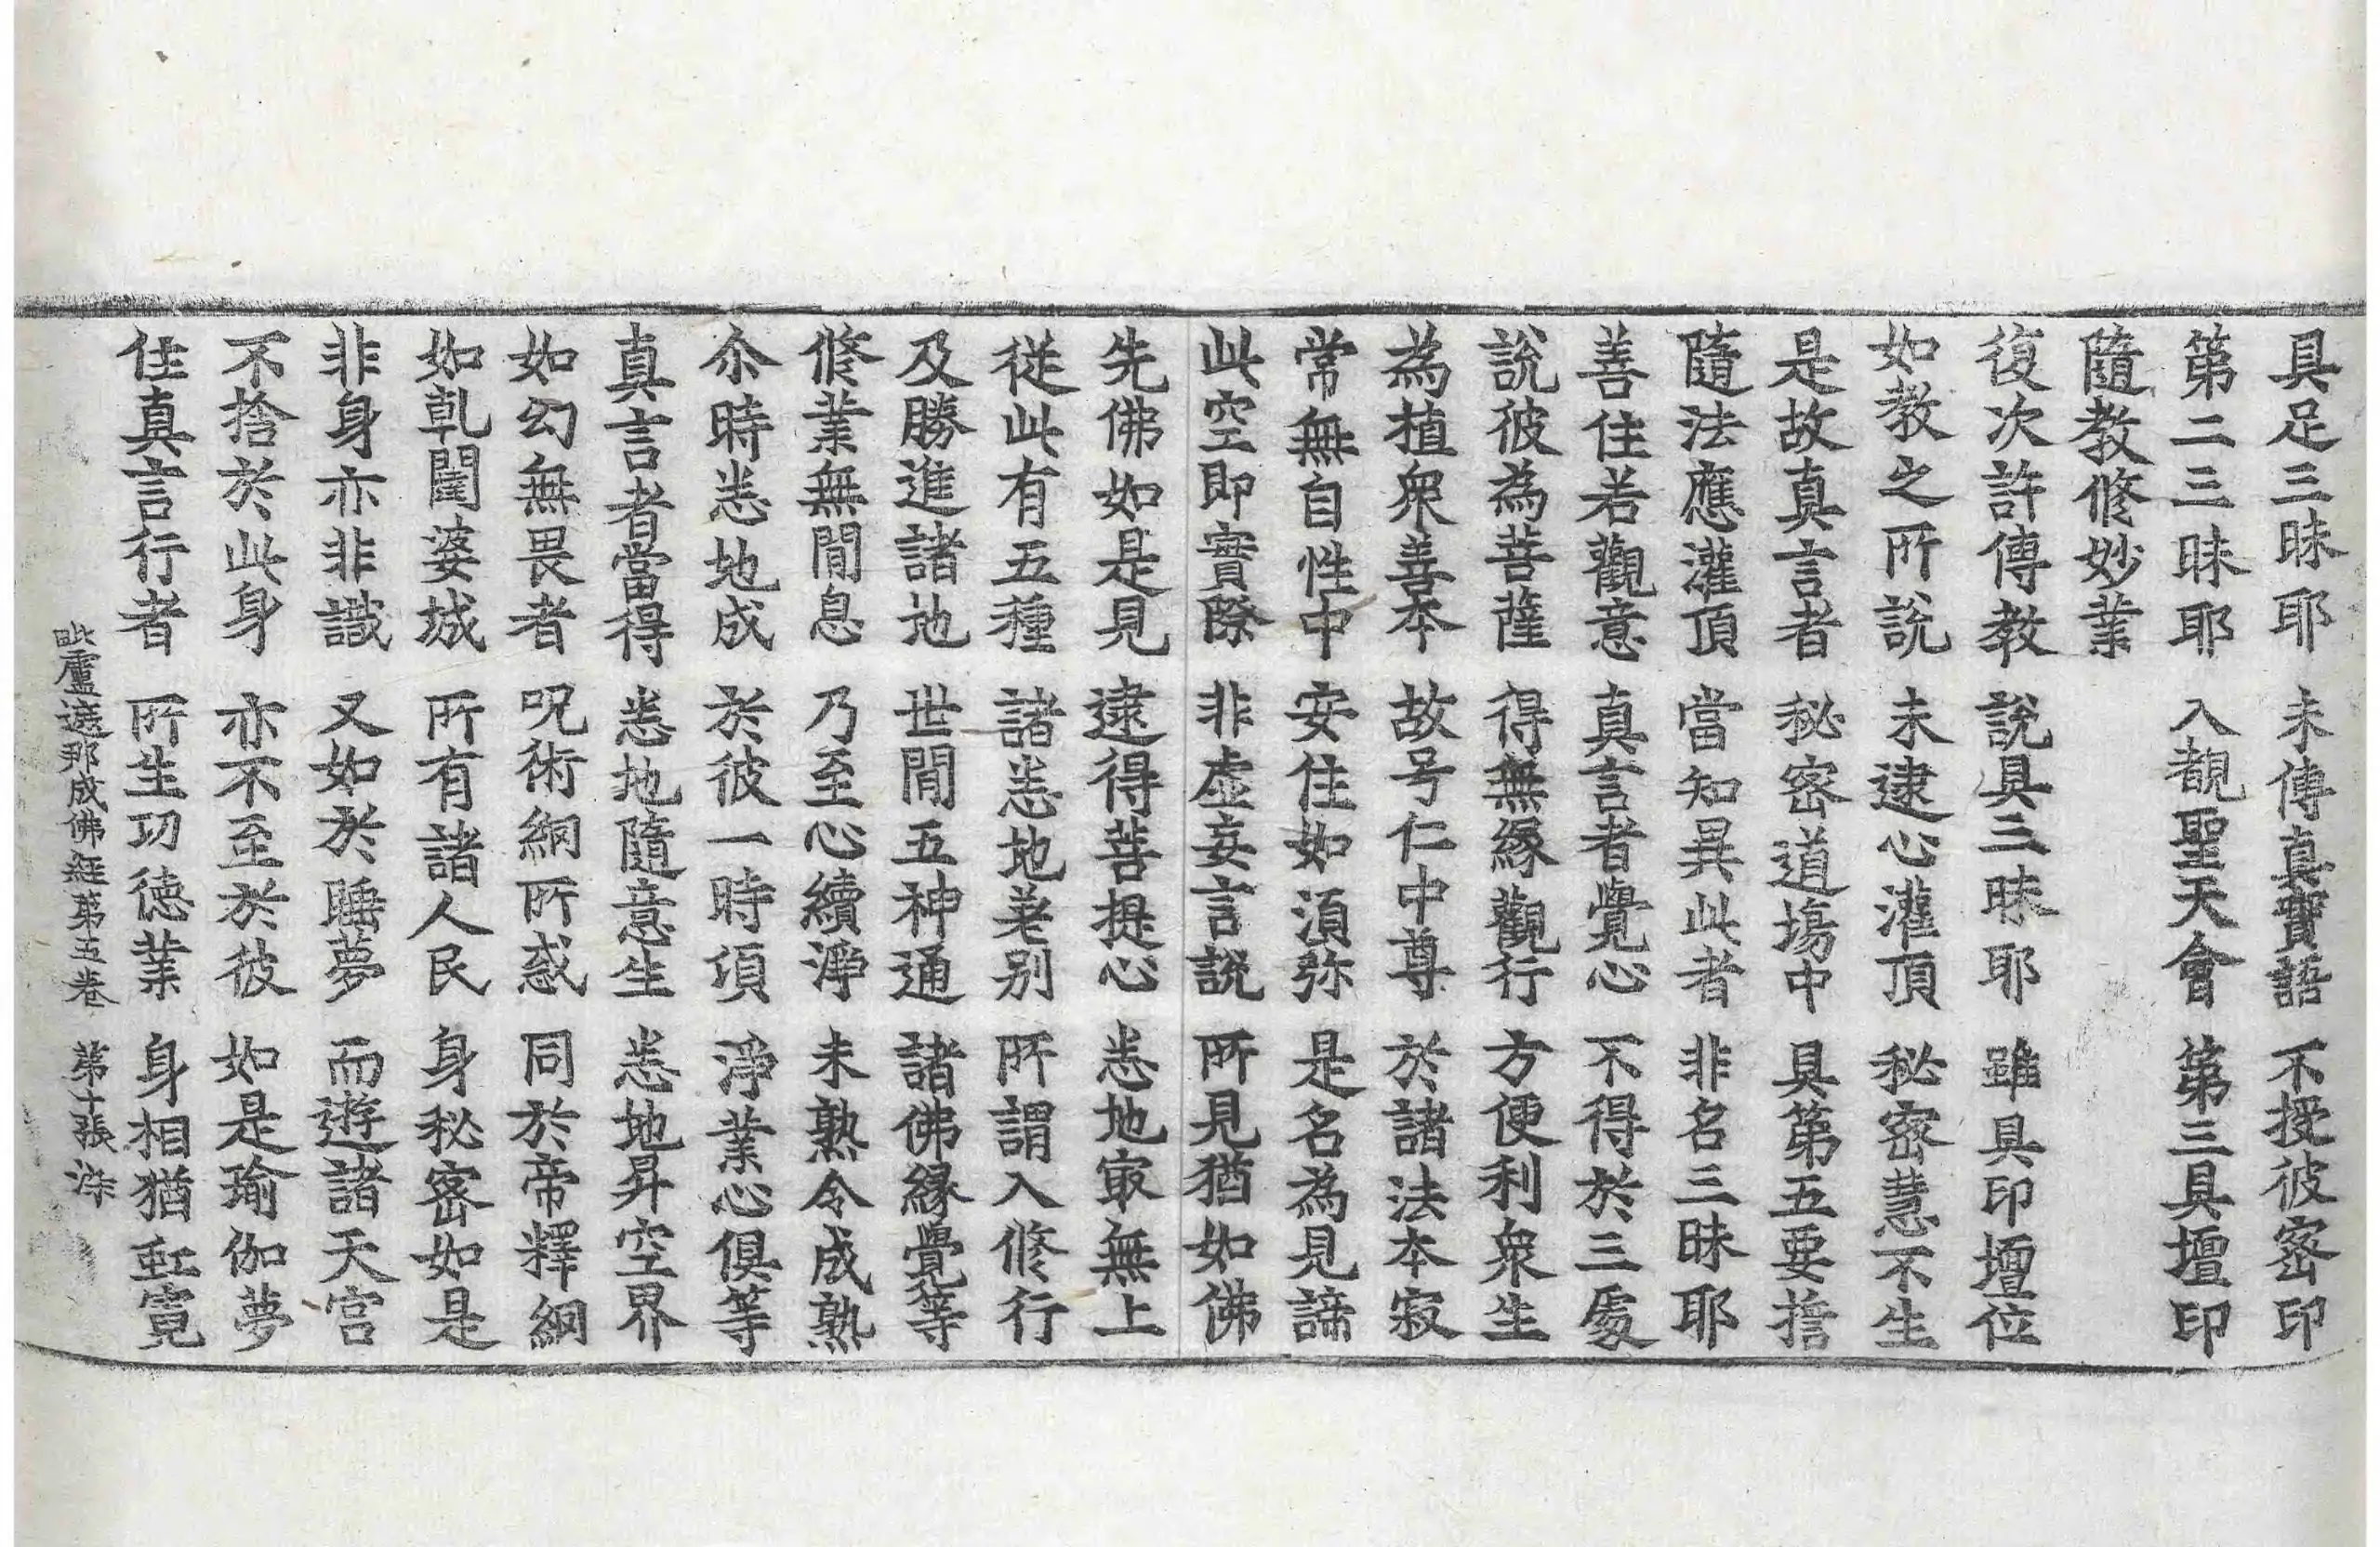 具足三昧耶　未傳真實語　不授彼密印
第二三昧耶　入覩聖天會　第三具壇印
隨教修妙業
復次許傳教　說具三昧耶　雖具印壇位
如教之所說　未逮心灌頂　秘密慧不生
是故真言者　秘密道場中　具第五要誓
隨法應灌頂　當知異此者　非名三昧耶
善住若觀意　真言者覺心　不得於三處
說彼為菩薩　得無緣觀行　方便利衆生
為植衆善本　故号仁中尊　於諸法本寂
常無自性中　安住如湏弥　是名為見諦
此空即實際　非虛妄言說　所見猶如佛
先佛如是見　逮得菩提心　悉地㝡無上
從此有五種　諸悉地差別　所謂入修行
及勝進諸地　世間五神通　諸佛緣覺等
修業無間息　乃至心續淨　未熟令成熟
尒時悉地成　於彼一時頃　淨業心俱等
真言者當得　悉地隨意生　悉地昇空界
如幻無畏者　呪術網所惑　同於帝釋網
如乹闥婆城　所有諸人民　身秘密如是
非身亦非識　又如於睡夢　而遊諸天宮
不捨於此身　亦不至於彼　如是瑜伽夢
住真言行者　所生功德業　身相猶虹霓
毗盧遮那成佛經第五卷　第十張　染